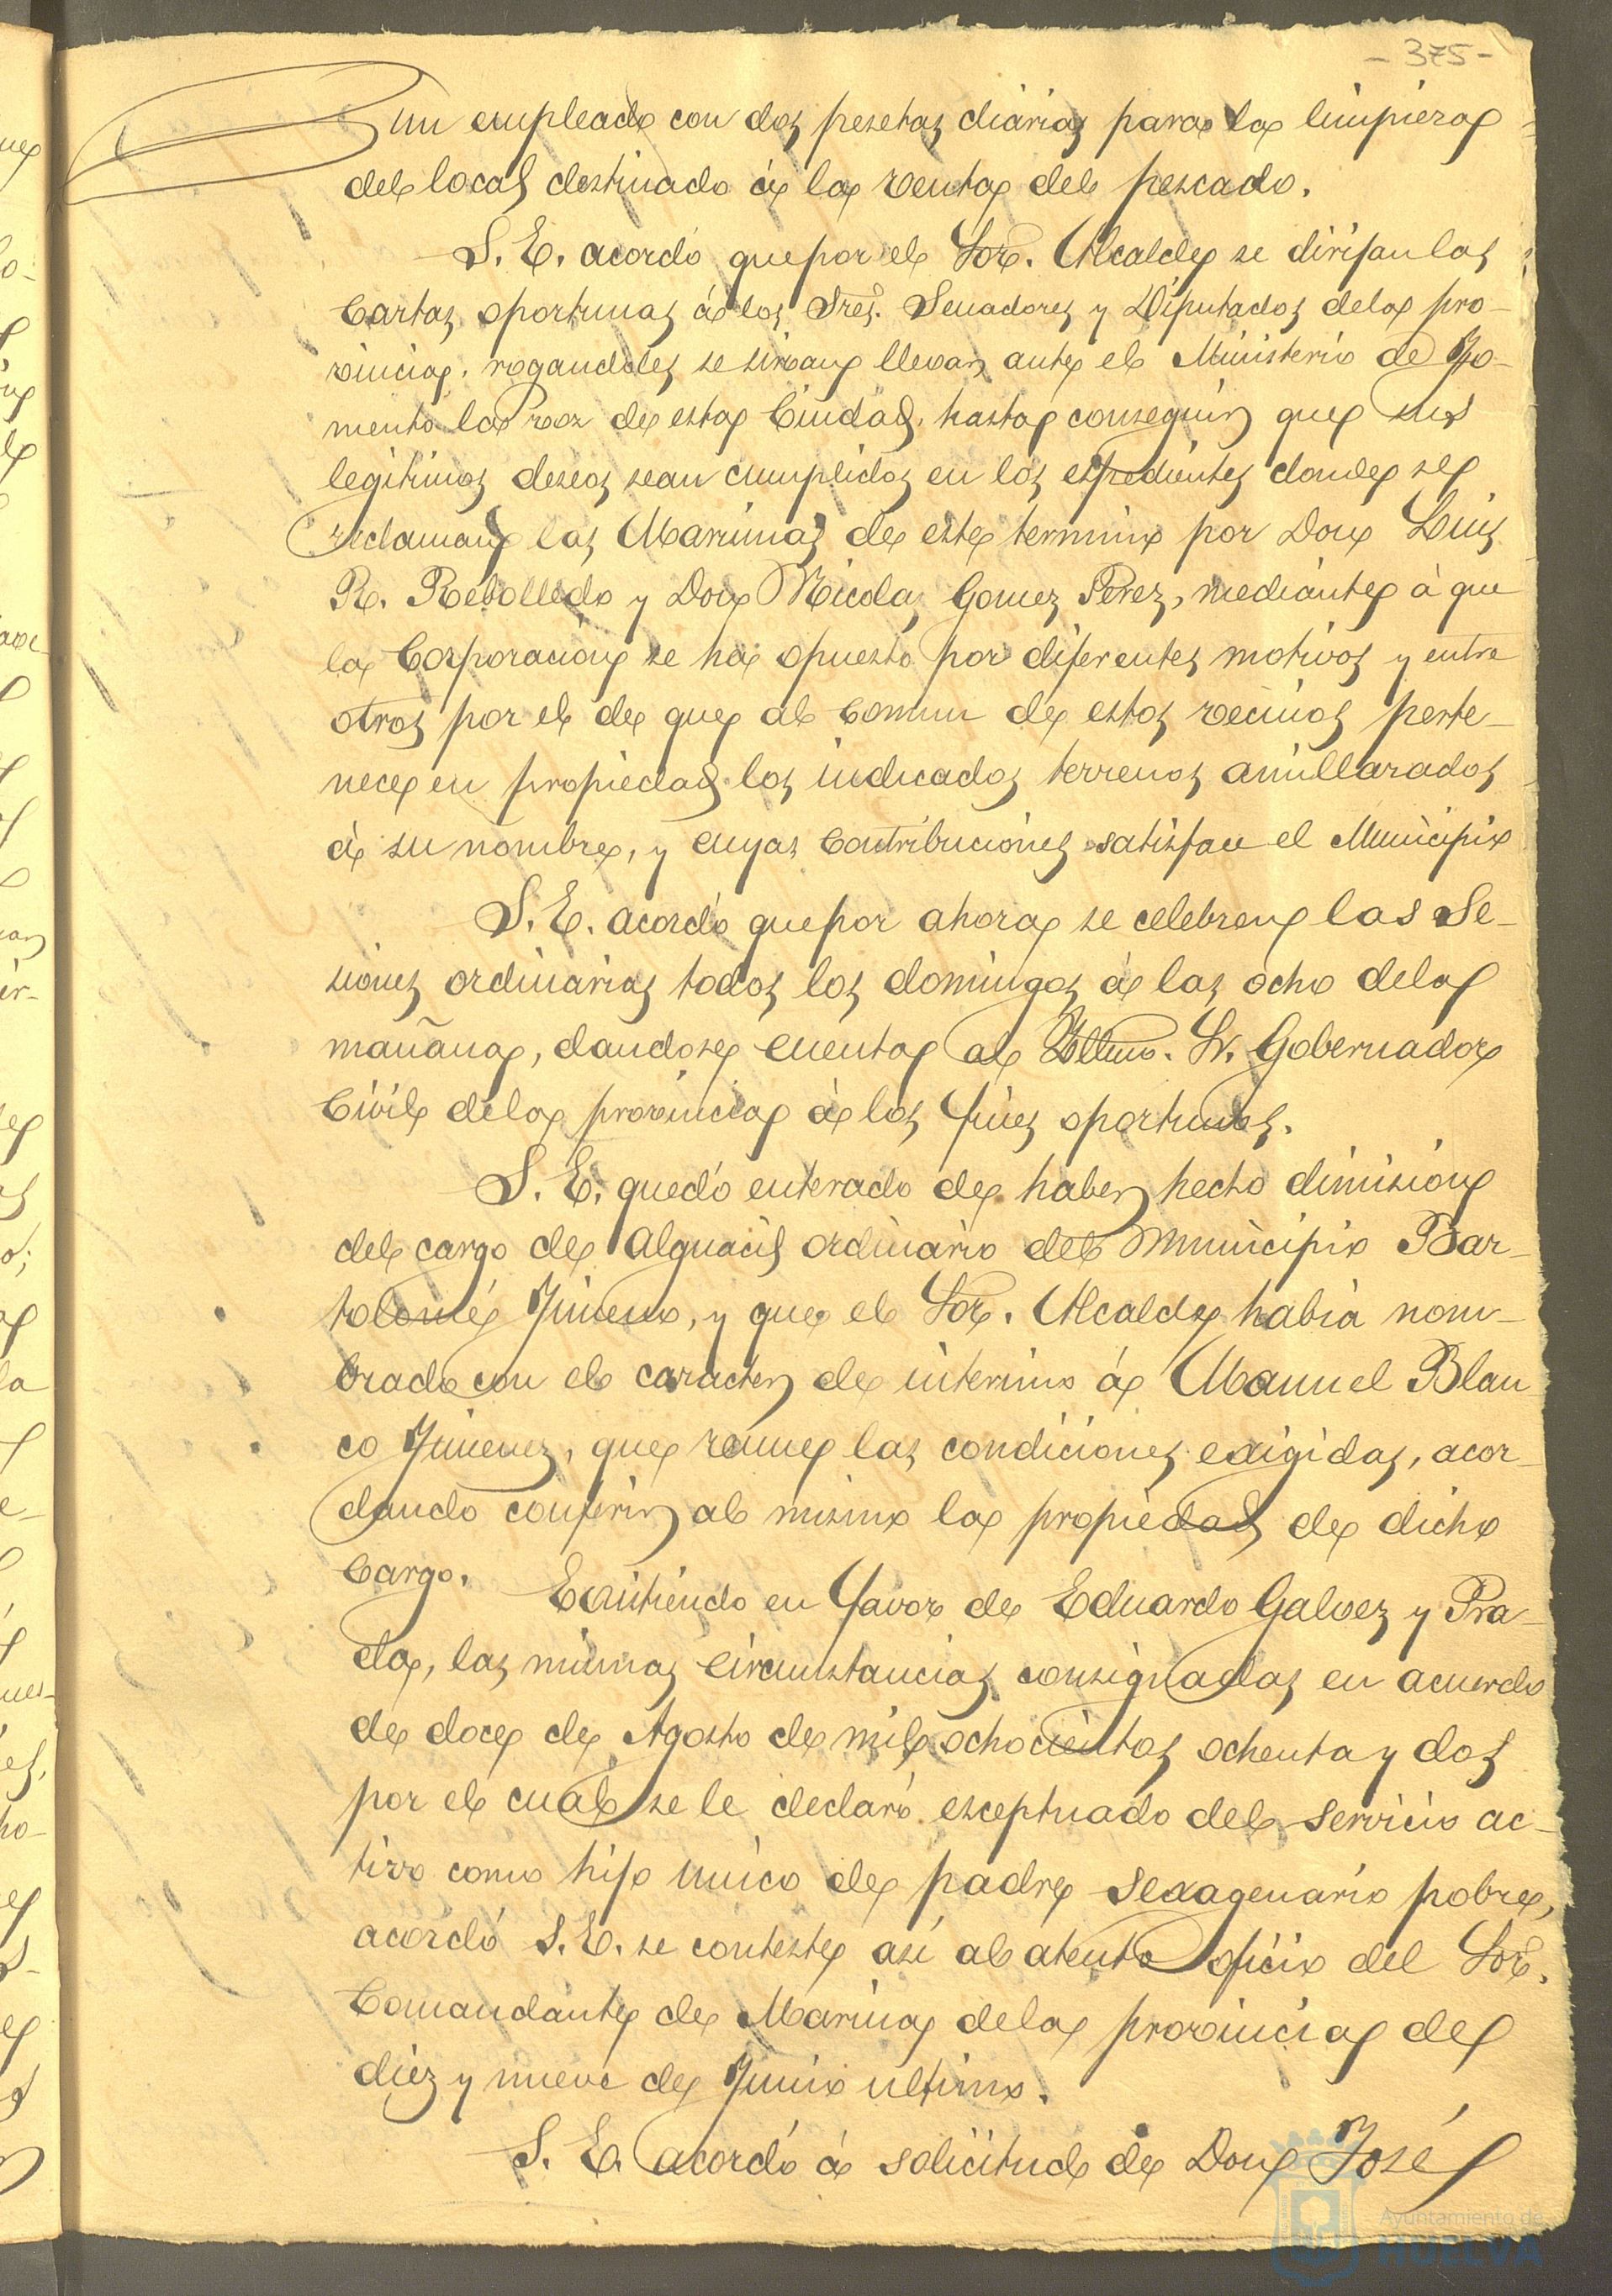 - 375 -
un empleado con dos pesetas diarias para la limpieza
del local destinado á la venta del pescado.
S. E. acordó que por el Sor. Alcalde se dirijan las
cartas oportunas á los Sres. Senadores y Diputados de la pro-
vincia, rogandoles se sirvan llevar ante el Ministerio de Fo-
mento la voz de esta Ciudad, hasta conseguir que sus
legitimos deseos sean cumplidos en los espedientes donde se
reclaman las Marismas de este termino por Don Luis
R. Rebolledo y Don Nicolas Gomez Perez, mediante á que
la Corporacion se há opuesto por diferentes motivos y entre
otros por el de que al comun de estos vecinos perte-
nece en propiedad los indicados terrenos amillarados
á su nombre, y cuyas contribuciones satisface el Municipio
S. E. acordó que por ahora se celebren las Se-
siones ordinarias todos los domingos á las ocho de la
mañana, dandose cuenta al Illmo. Sr. Gobernador
Civil de la provincia á los fines oportunos.
S. E. quedó enterado de haber hecho dimision
del cargo de alguacil ordinario del Municipio Bar-
tolomé Jimeno, y que el Sor. Alcalde habia nom-
brado con el caracter de interino á Manuel Blan
co Jimenez, que reune las condiciones exigidas, acor-
dando conferir al mismo la propiedad de dicho
cargo. Existiendo en favor de Eduardo Galvez y Pra-
da, las mismas circunstancias consignadas en acuerdo
de doce de Agosto de mil ochocientos ochenta y dos
por el cual se le declaró esceptuado del servicio ac-
tivo como hijo único de padre sexagenario pobre,
acordó S. E. se conteste asi al atento oficio del Sor.
Comandante de Marina de la provincia de
diez y nueve de Junio ultimo.
S. E. acordó á solicitud de Don José
Ayuntamiento de
HUELVA